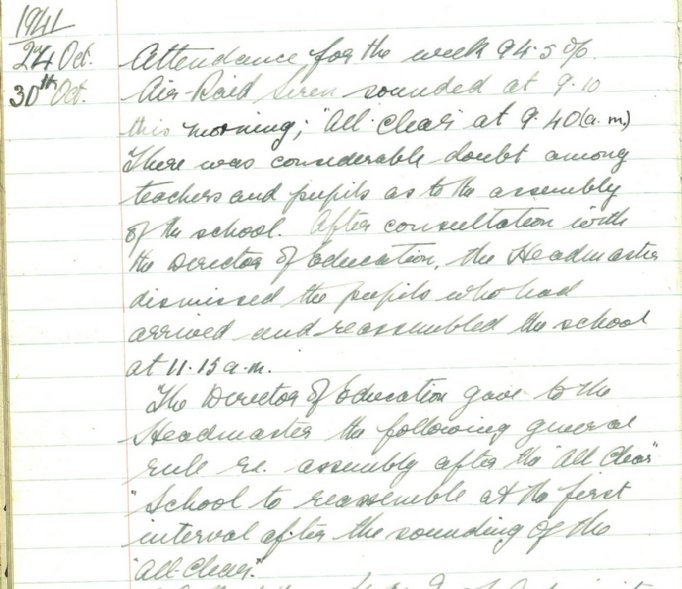 1941
24 Oct. Attendance for the week 94.5%.
30th Oct. Air-Raid Siren sounded at 9.10
this morning; "All Clear" at 9.40 (a.m.)
There was considerable doubt among
teachers and pupils as to the assembly
of the school. After consultation with
the Director of Education, the Headmaster
dismissed the pupils who had
arrived and reassembled the school
at 11.15 a.m.
The Director of Education gave to the
Headmaster the following general
rule re. assembly after the "All Clear"
"School to reassemble at the first
interval after the sounding of the
"All-Clear".